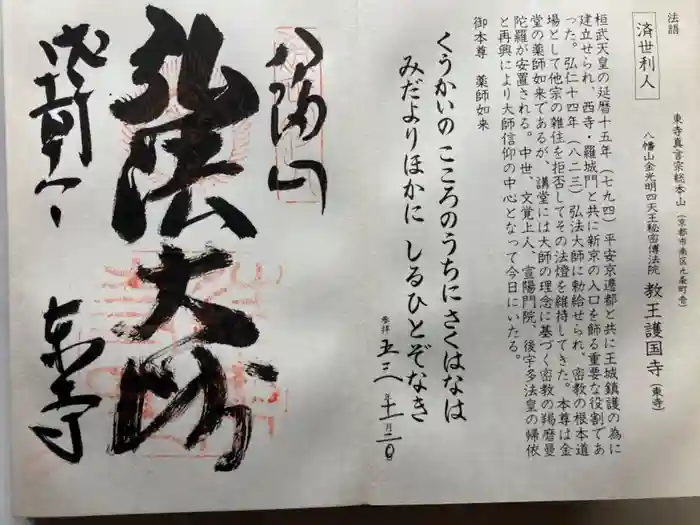 法語
済世利人
東寺真言宗総本山（京都市南区九条町壱）
八幡山金光明四天王秘密傳法院 教王護国寺（東寺）
桓武天皇の延暦十五年（七九四）平安京遷都と共に王城鎮護の為に
建立せられ、西寺・羅城門と共に新京の入口を飾る重要な役割であ
った。弘仁十四年（八二三）弘法大師に勅給せられ、密教の根本道
場として他宗の雑住を拒否してその法燈を維持してきた。本尊は金
堂の薬師如来であるが、講堂には大師の理念に基づく密教の羯磨曼
陀羅が安置される。中世、文覚上人、宣陽門院、後宇多法皇の帰依
と再興により大師信仰の中心となって今日にいたる。
御本尊 薬師如来
くうかいの こころのうちにさくはなは
みだよりほかに しるひとぞなき
参拝 五三年十一月二〇
八幡山
弘法大師
東寺